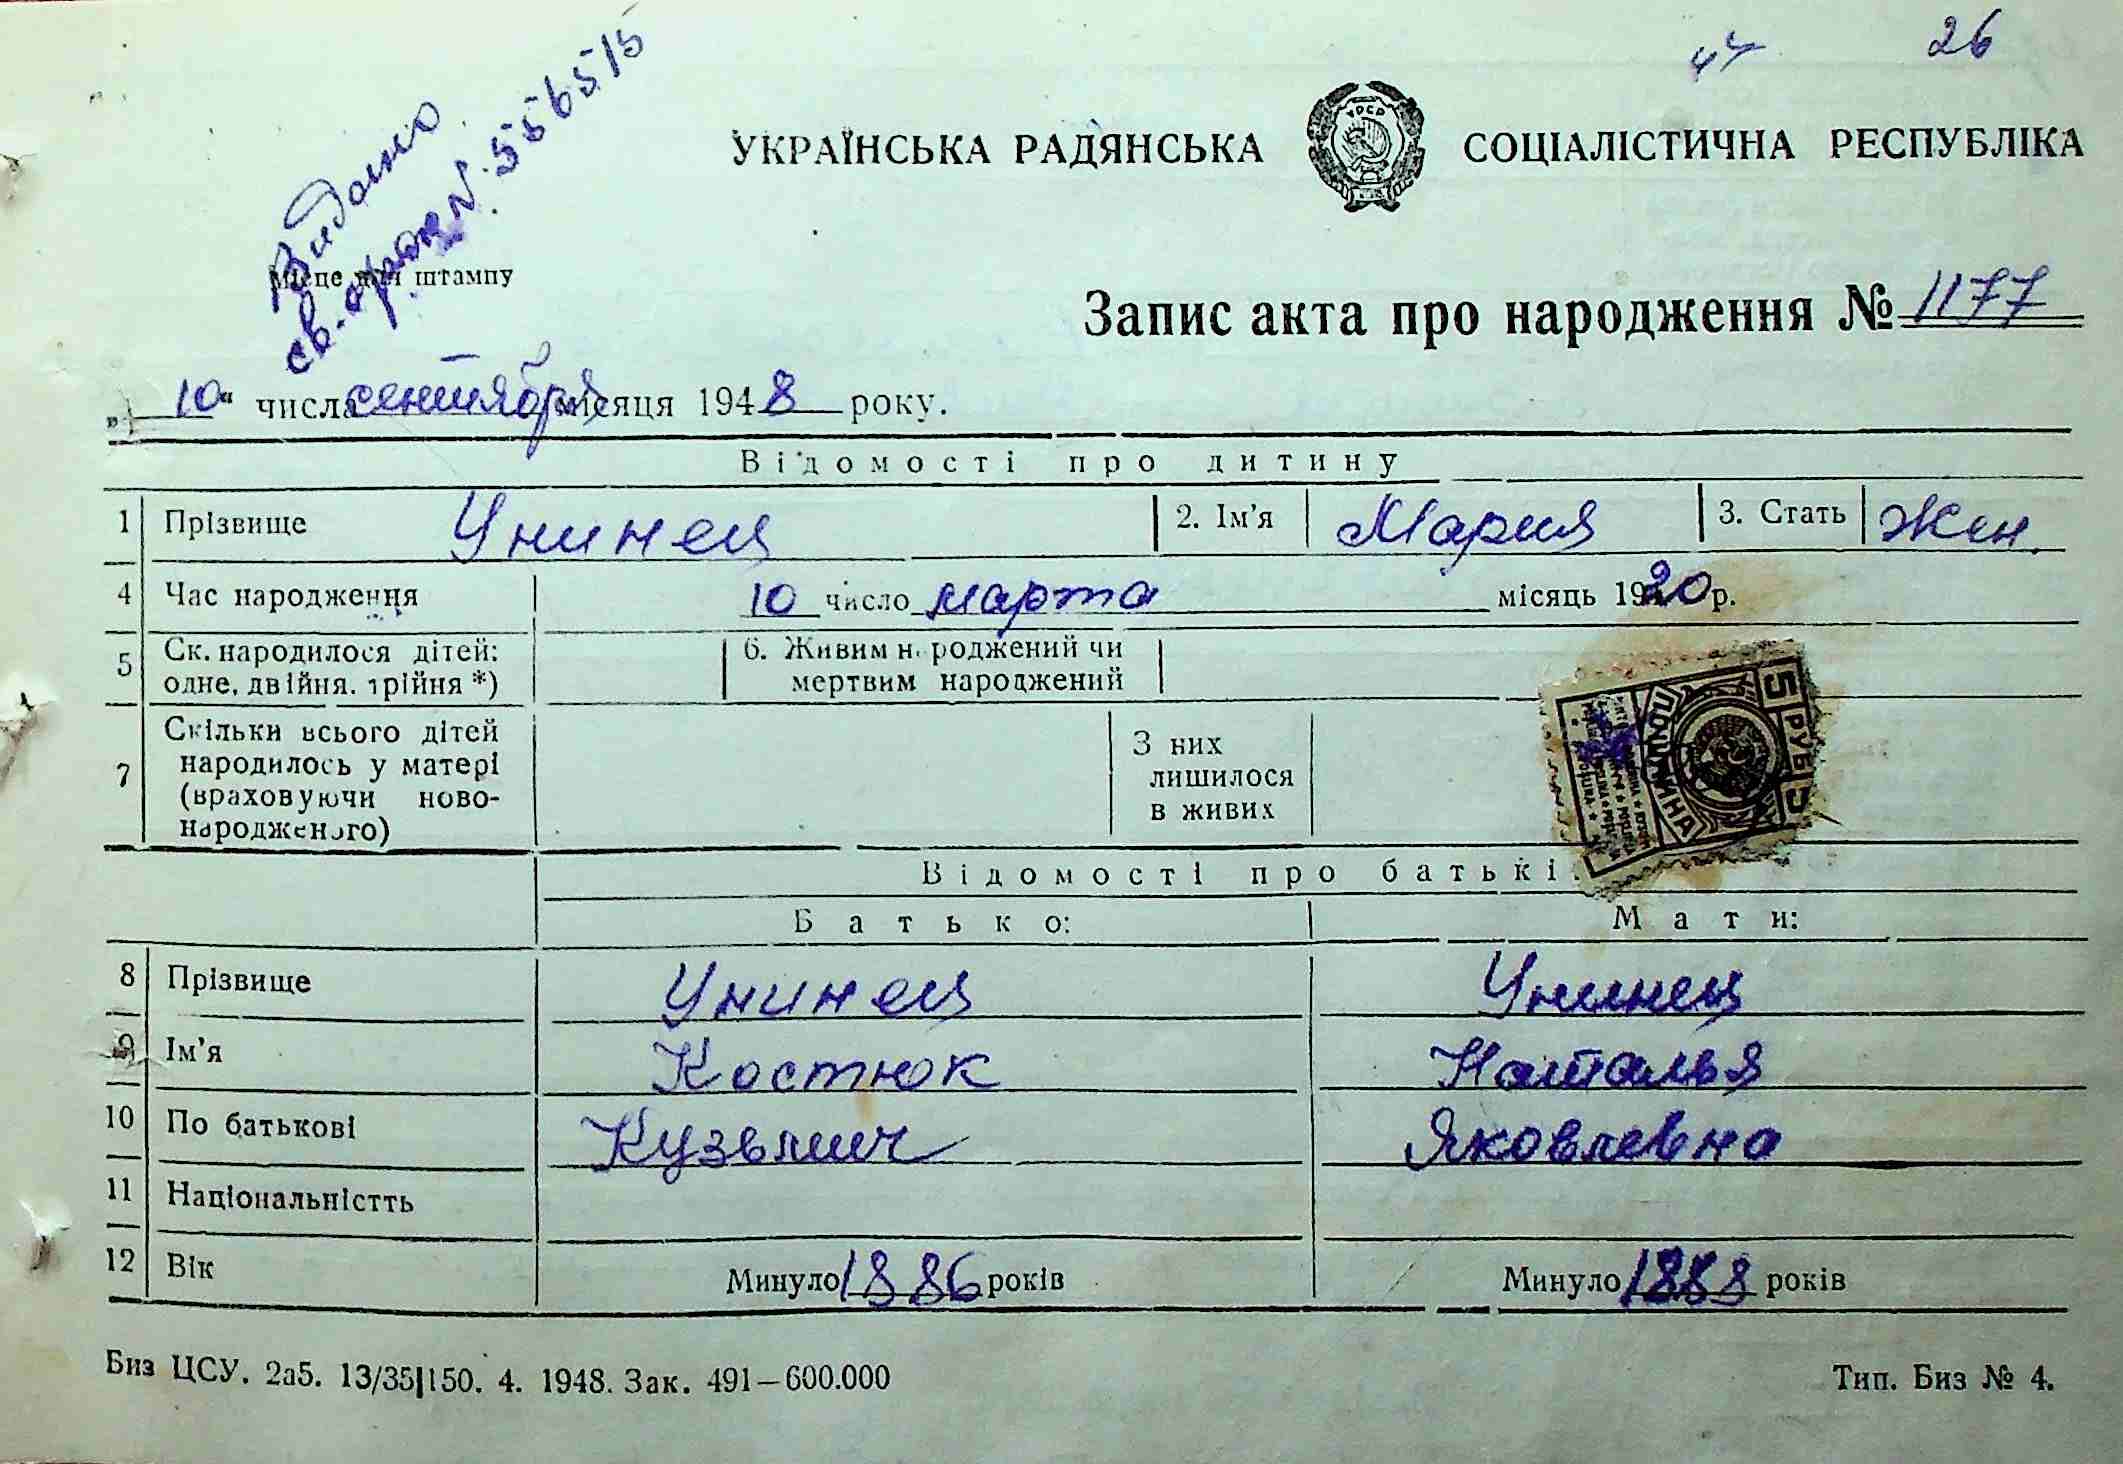 26
Видано
св. о рож N. 556515
УКРАЇНСЬКА РАДЯНСЬКА СОЦІАЛІСТИЧНА РЕСПУБЛІКА
УРСР
Місце для штампу
Запис акта про народження № 1177
„10“ числа сентября місяця 1948 року.
Відомості про дитину
1 Прізвище Унинец 2. Ім'я Мария 3. Стать Жен.
4 Час народження 10 число марта місяць 1920 р.
5 Ск. народилося дітей: одне, двійня, трійня *) 6. Живим народжений чи мертвим народжений
7 Скільки всього дітей народилось у матері (враховуючи новонародженого) З них лишилося в живих
5 РУБ 5
ПОШЛИНА
Відомості про батьків
Батько: Мати:
8 Прізвище Унинец Унинец
9 Ім'я Костюк Наталья
10 По батькові Кузьмич Яковлевна
11 Національністть
12 Вік Минуло 1886 років Минуло 1888 років
Биз ЦСУ. 2а5. 13/35|150. 4. 1948. Зак. 491—600.000 Тип. Биз № 4.